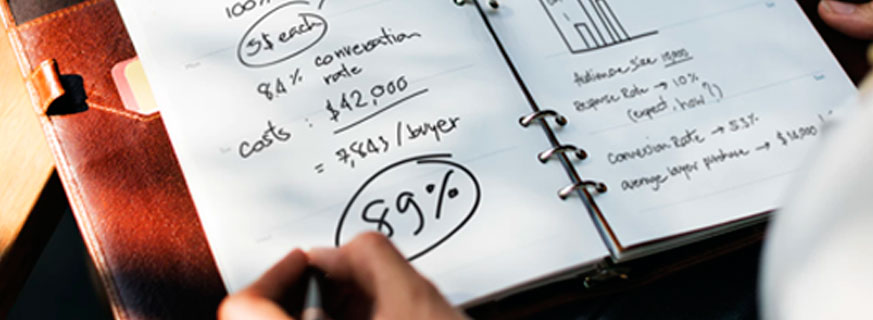 100%
5$ each
8.4% conversation
rate
costs : $42,000
= 7,843 / buyer
89%
Audience size 10,000
response Rate → 10%
(expect, how?)
Conversion Rate → 5.3%
average buyer purchase → $14,000